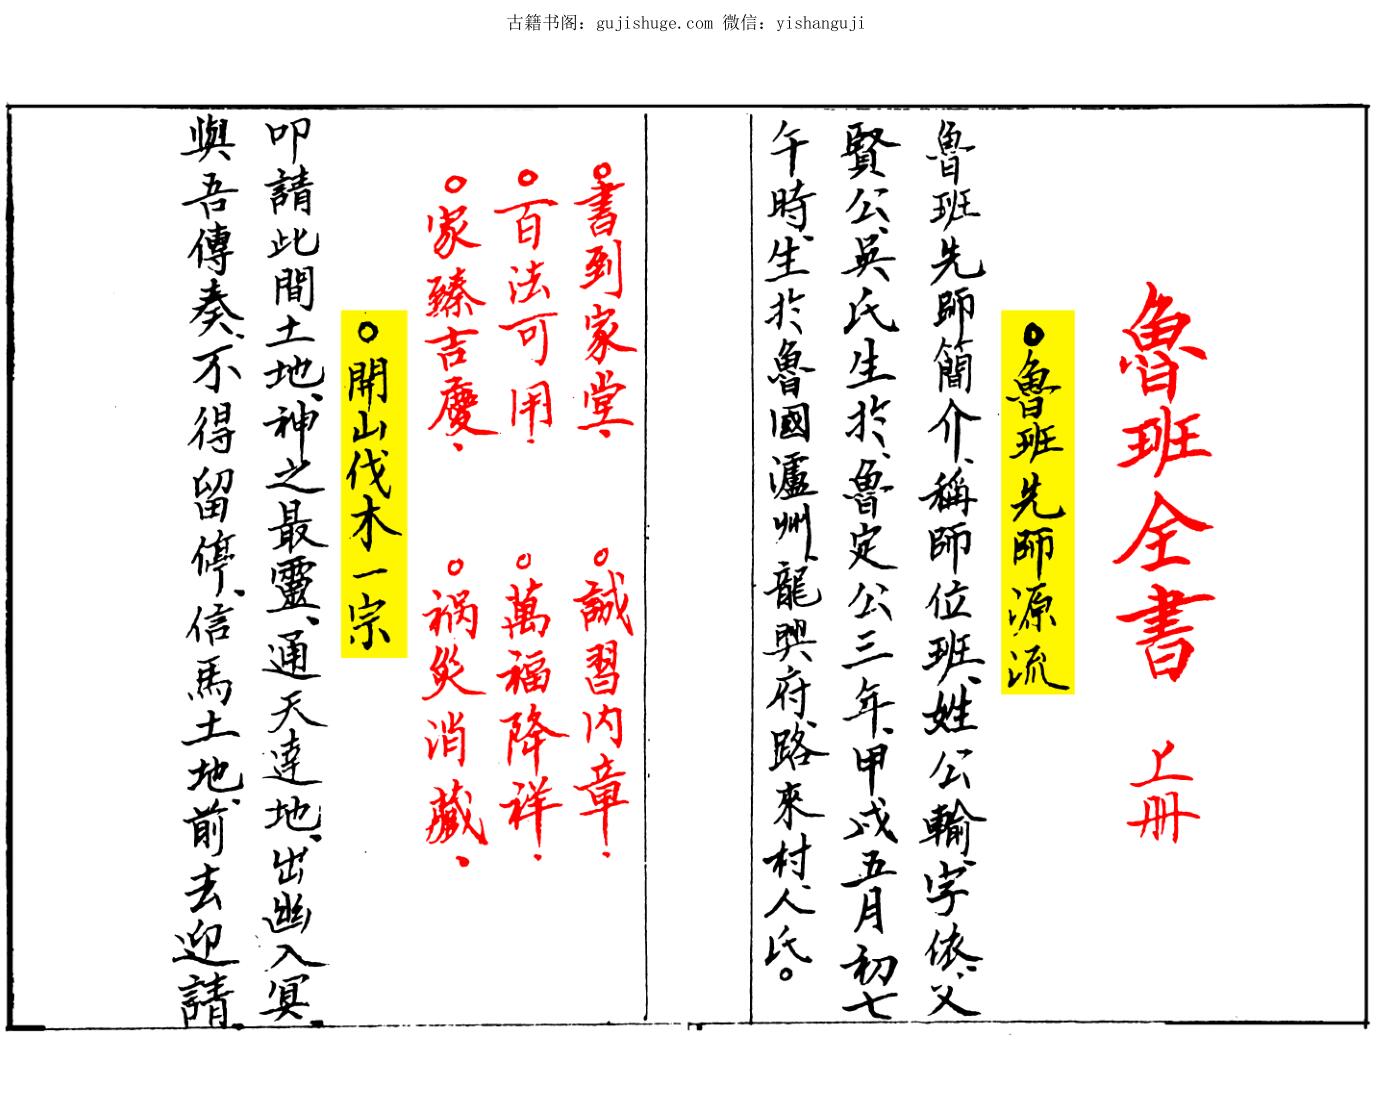 古籍书阁：gujishuge.com 微信：yishanguji
魯班全書 上册
○魯班先師源流
魯班先師簡介、稱師位班、姓公輸、字依、父
賢公、吳氏生於、魯定公三年、甲戌五月初七
午時、生於魯國瀘州、龍興府、路來村、人氏。
○書到家堂、 ○誠習內章、
○百法可用、 ○萬福降祥、
○家臻吉慶、 ○祸災消藏、
○開山伐木一宗
叩請此間土地、神之最靈、通天達地、出幽入冥、
與吾傳奏、不得留停、信馬土地、前去迎請、